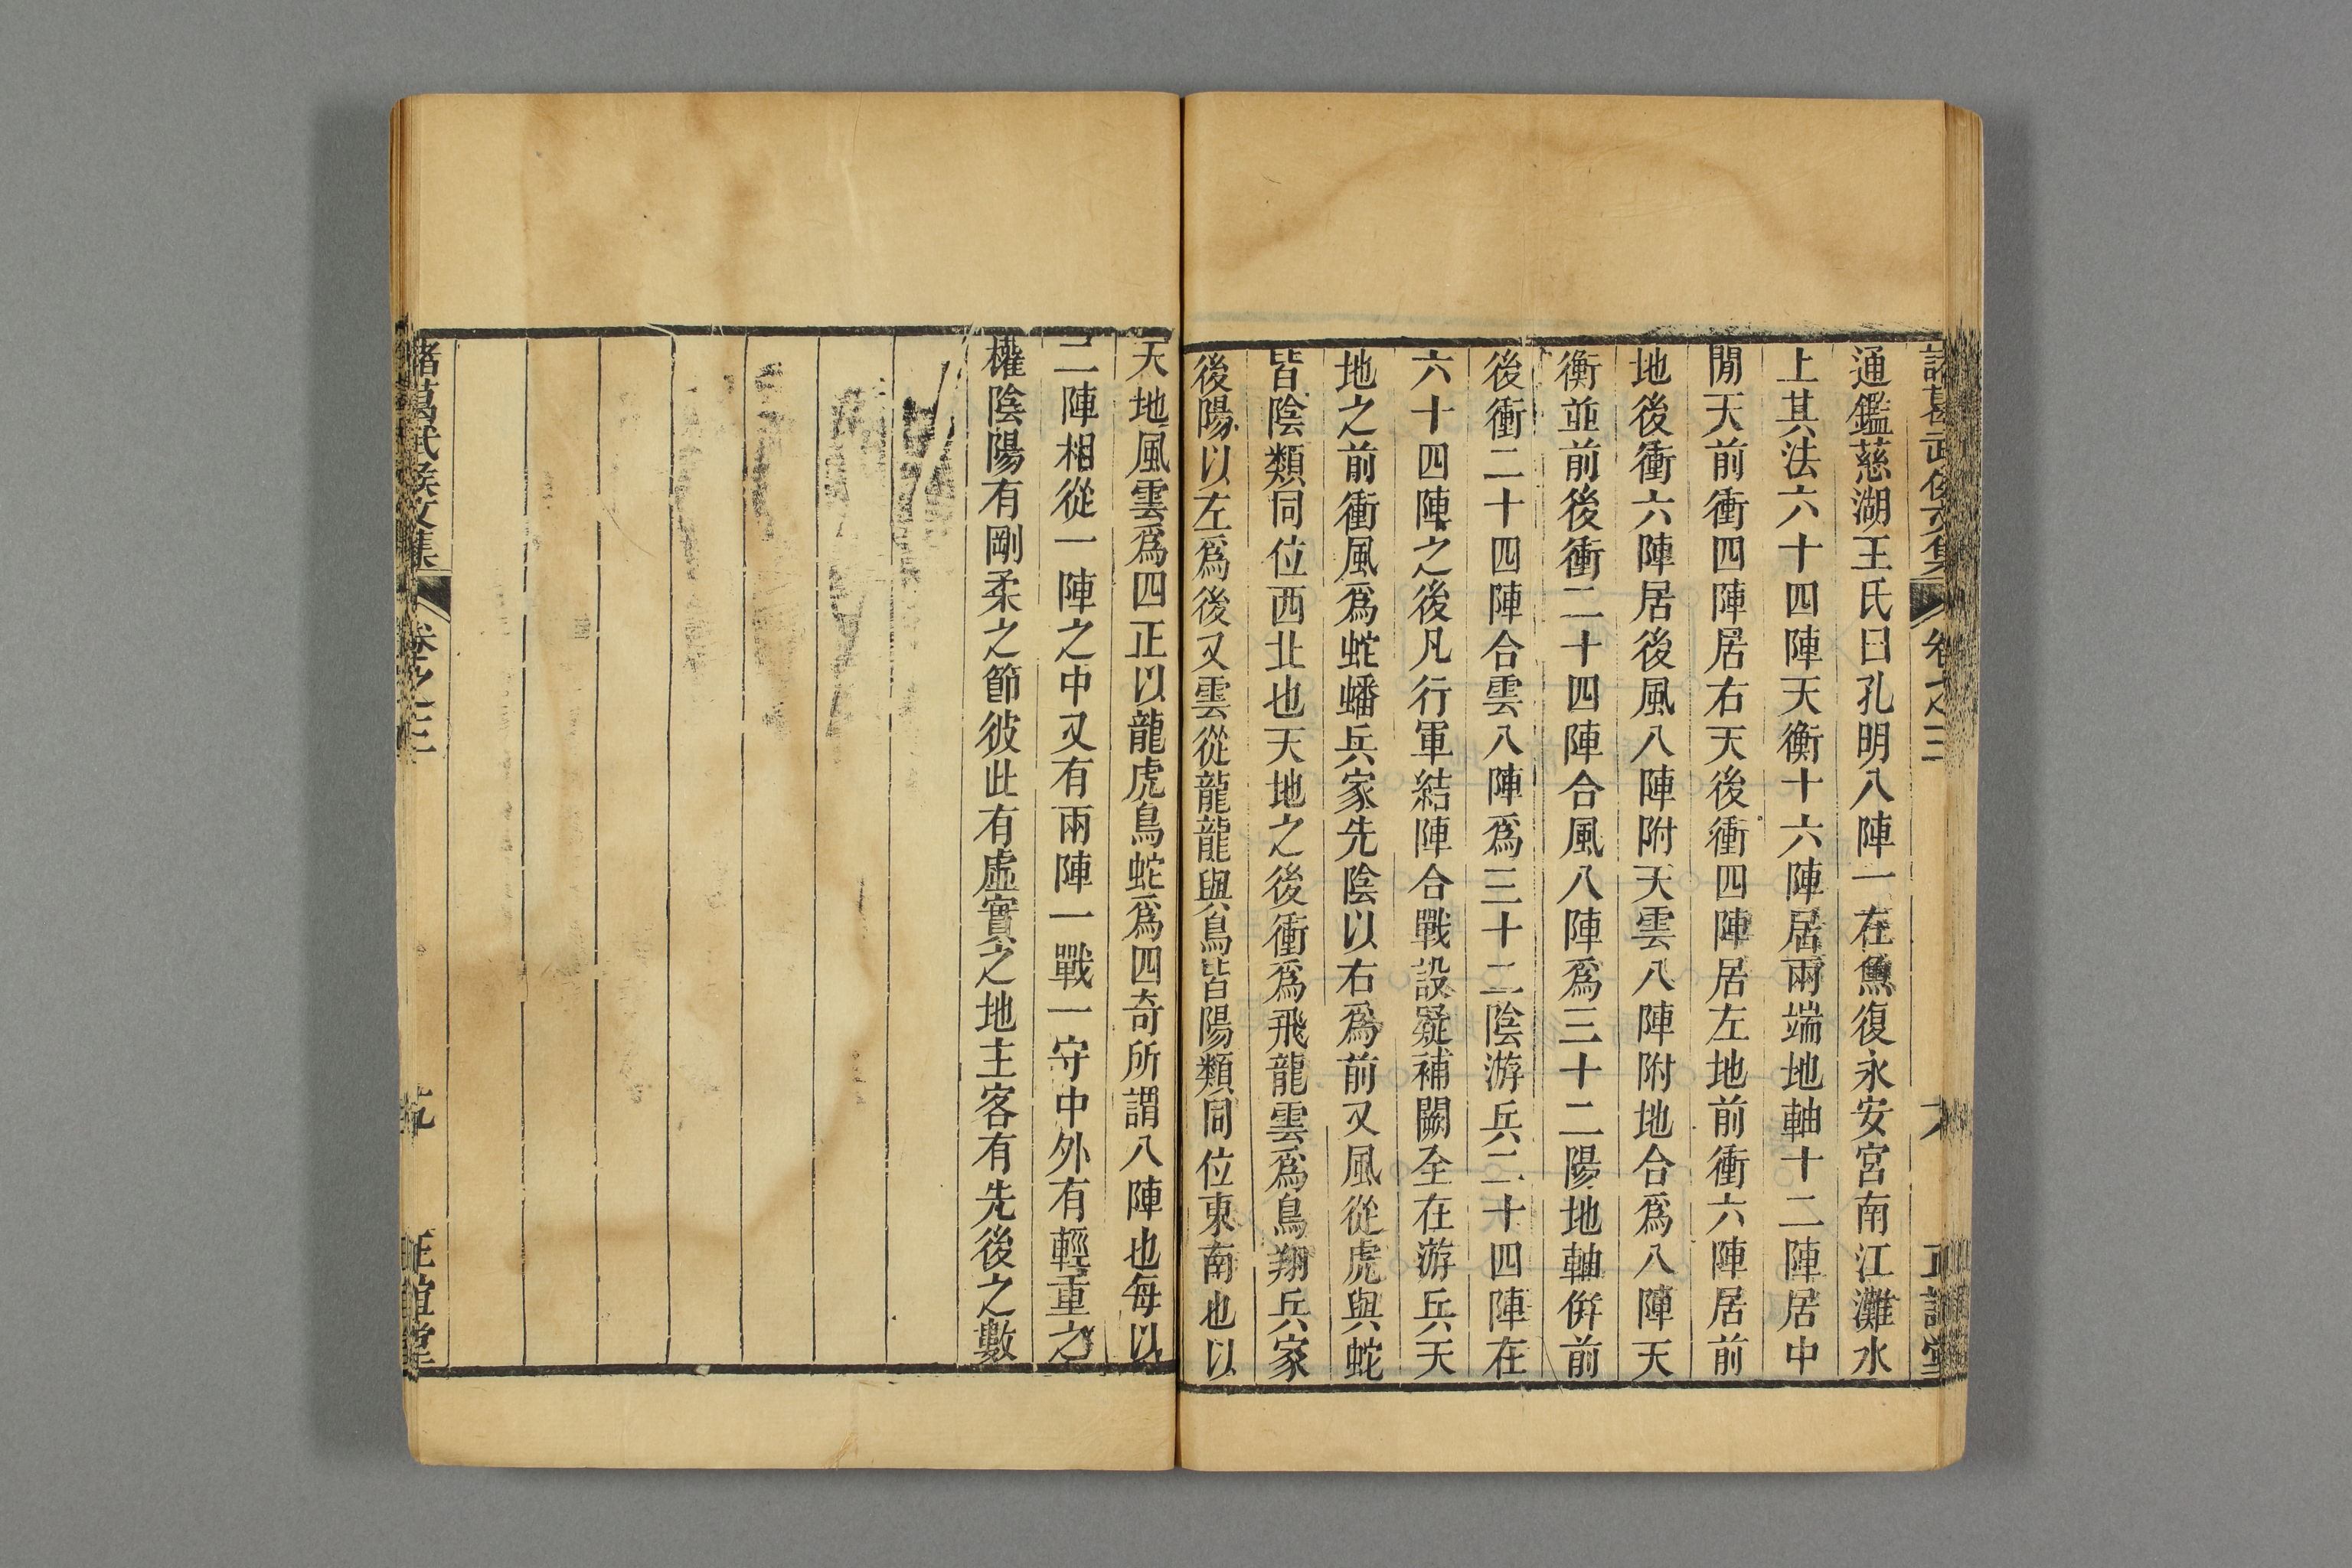 諸葛武侯文集 卷之三 六 正誼堂
通鑑慈湖王氏曰孔明八陣一在魚復永安宮南江灘水
上其法六十四陣天衡十六陣居兩端地軸十二陣居中
閒天前衝四陣居右天後衝四陣居左地前衝六陣居前
地後衝六陣居後風八陣附天雲八陣附地合爲八陣天
衡並前後衝二十四陣合風八陣爲三十二陽地軸倂前
後衝二十四陣合雲八陣爲三十二陰游兵二十四陣在
六十四陣之後凡行軍結陣合戰設疑補闕全在游兵天
地之前衝風爲蛇蟠兵家先陰以右爲前又風從虎與蛇
皆陰類同位西北也天地之後衝爲飛龍雲爲鳥翔兵家
後陽以左爲後又雲從龍龍與鳥皆陽類同位東南也以
天地風雲爲四正以龍虎鳥蛇爲四奇所謂八陣也每以
二陣相從一陣之中又有兩陣一戰一守中外有輕重之
權陰陽有剛柔之節彼此有虛實之地主客有先後之數
諸葛武侯文集 卷之三 正誼堂